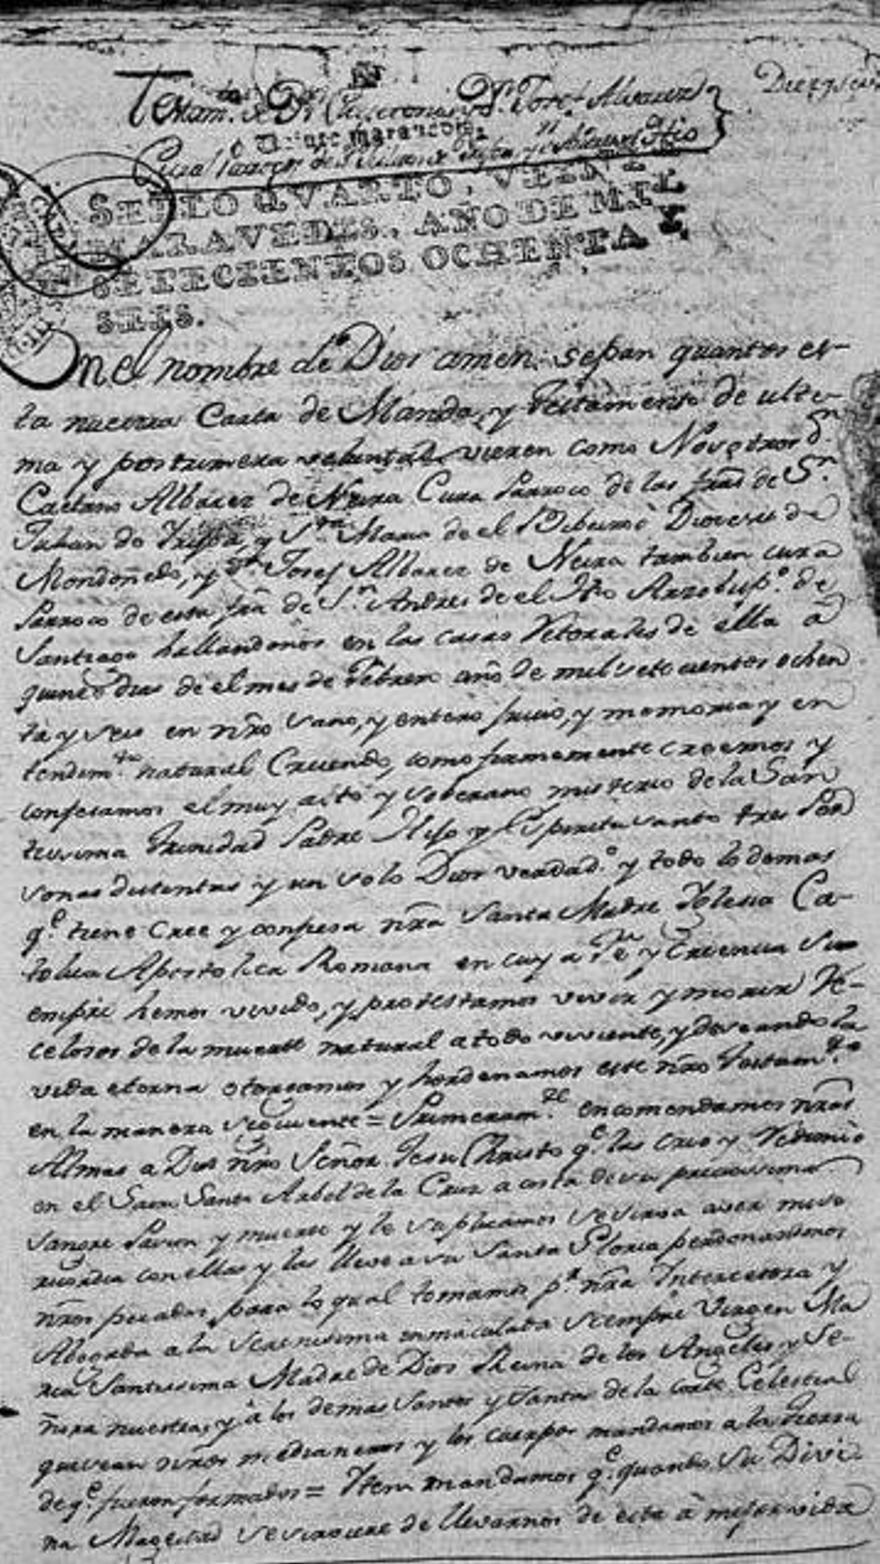 Testam.to de D.n
Veinte maravedis.
SELLO QVARTO, VEINTE
MARAVEDIS, AÑO DE MIL
SETECIENTOS OCHENTA Y
SEIS.
En el nombre de Dios amen. sepan quantos es-
ta nuestra Carta de Manda, y testamento de ulti-
ma y postrimera voluntad vieren como Nosotros d.n
Caetano Albarez de Neira Cura Parroco de las frãs de S.n
Julian de y S.ta Maria de el Diocesis de
Mondoñedo, y d.n Josef Albarez de Neira tambien cura
Parroco de esta frã de S.n Andres de el Arzobisp.o de
Santiago hallandonos en las casas Retorales de ella a
quince dias de el mes de Febrero año de mil setecientos ochen
ta y seis en nrõ sano, y entero juicio, y memoria y en
tendim.to natural Creiendo, como firmemente creemos y
confesamos el muy alto y soberano misterio de la San
tissima trinidad Padre Hijo y Espiritu santo tres Per
sonas distintas y un solo Dios verdad.o y todo lo demas
q.e tiene Cree y confiesa nrã Santa Madre Yglesia Ca-
tolica Apostolica Romana en cuya Fe y Creencia Si
empre hemos vivido, y protestamos vivir y morir Re-
celosos de la muerte natural a todo viviente, y deseando la
vida eterna otorgamos y hordenamos este nrõ testam.to
en la manera seguiente = Primeram.te encomendamos nrãs
Almas a Dios nrõ Señor Jesu Christo q.e las crio y Redimio
en el Sacro Santo Arbol de la Cruz a costa de su preciosissima
sangre Pasion y muerte y le suplicamos se sirva aser mise
ricordia con ellas y las lleve a su Santa Gloria perdonandonos
nrõs pecados, para lo qual tomamos p.r nrã Intercesora y
Abogada a la serenissima enmaculada siempre Virgen Ma
ria Santissima Madre de Dios Reina de los Angeles y Se-
ñora nuestra, y a los demas Santos y Santas de la corte Celestial
que sean nrõs medianeros y los cuerpos mandamos a la tierra
de q.e fueron formados = Item mandamos q.e quando Su Divi
na Magestad se sirviere de llevarnos de esta a mejor vida